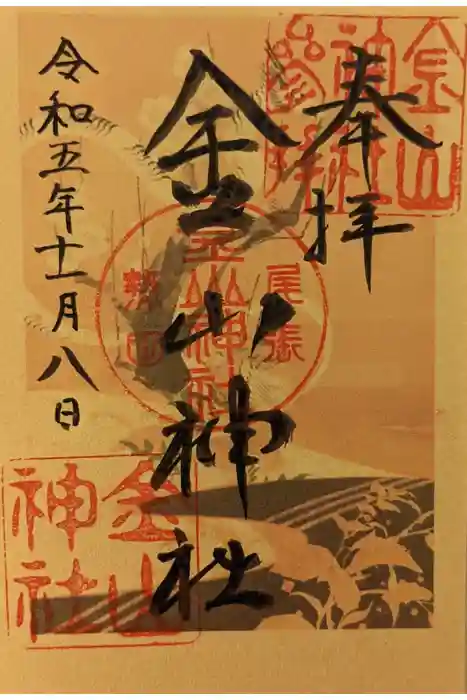 奉拝
金山神社
令和五年十一月八日
金山神社参拝
尾張
金山神社
熱田
金山神社